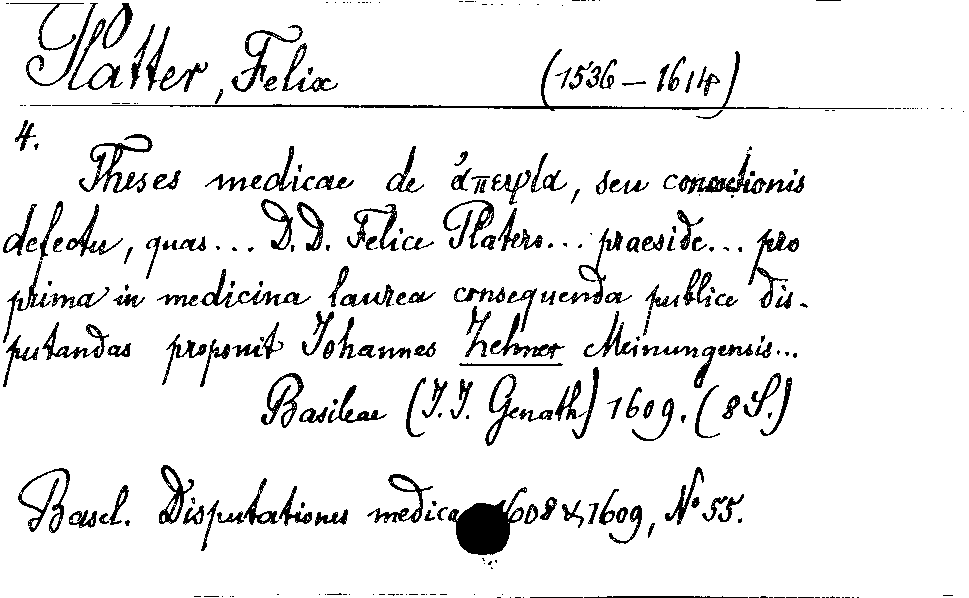 Platter, Felix (1536 – 1614)
4.
Theses medicae de ἀπεψία, seu concoctionis
defectu, quas... D.D. Felice Platero... praeside... pro
prima in medicina laurea consequenda publice dis-
putandas proponit Johannes Zehner Meinungensis...
Basileae (J.J. Genath) 1609. (8 S.)
Basel. Disputationes medicae 1608 & 1609, No 55.